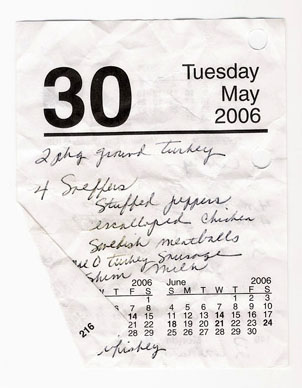 30
Tuesday
May
2006
2 pkg ground turkey
4 Sniffers
Stuffed peppers
escalloped chicken
Swedish meatballs
O Turkey Sausage
Skim Milk
2006 June 2006
T F S S M T W T F S
1 1 2 3
7 8 4 5 6 7 8 9 10
14 15 11 12 13 14 15 16 17
21 22 18 19 20 21 22 23 24
28 29 25 26 27 28 29 30
216
whiskey